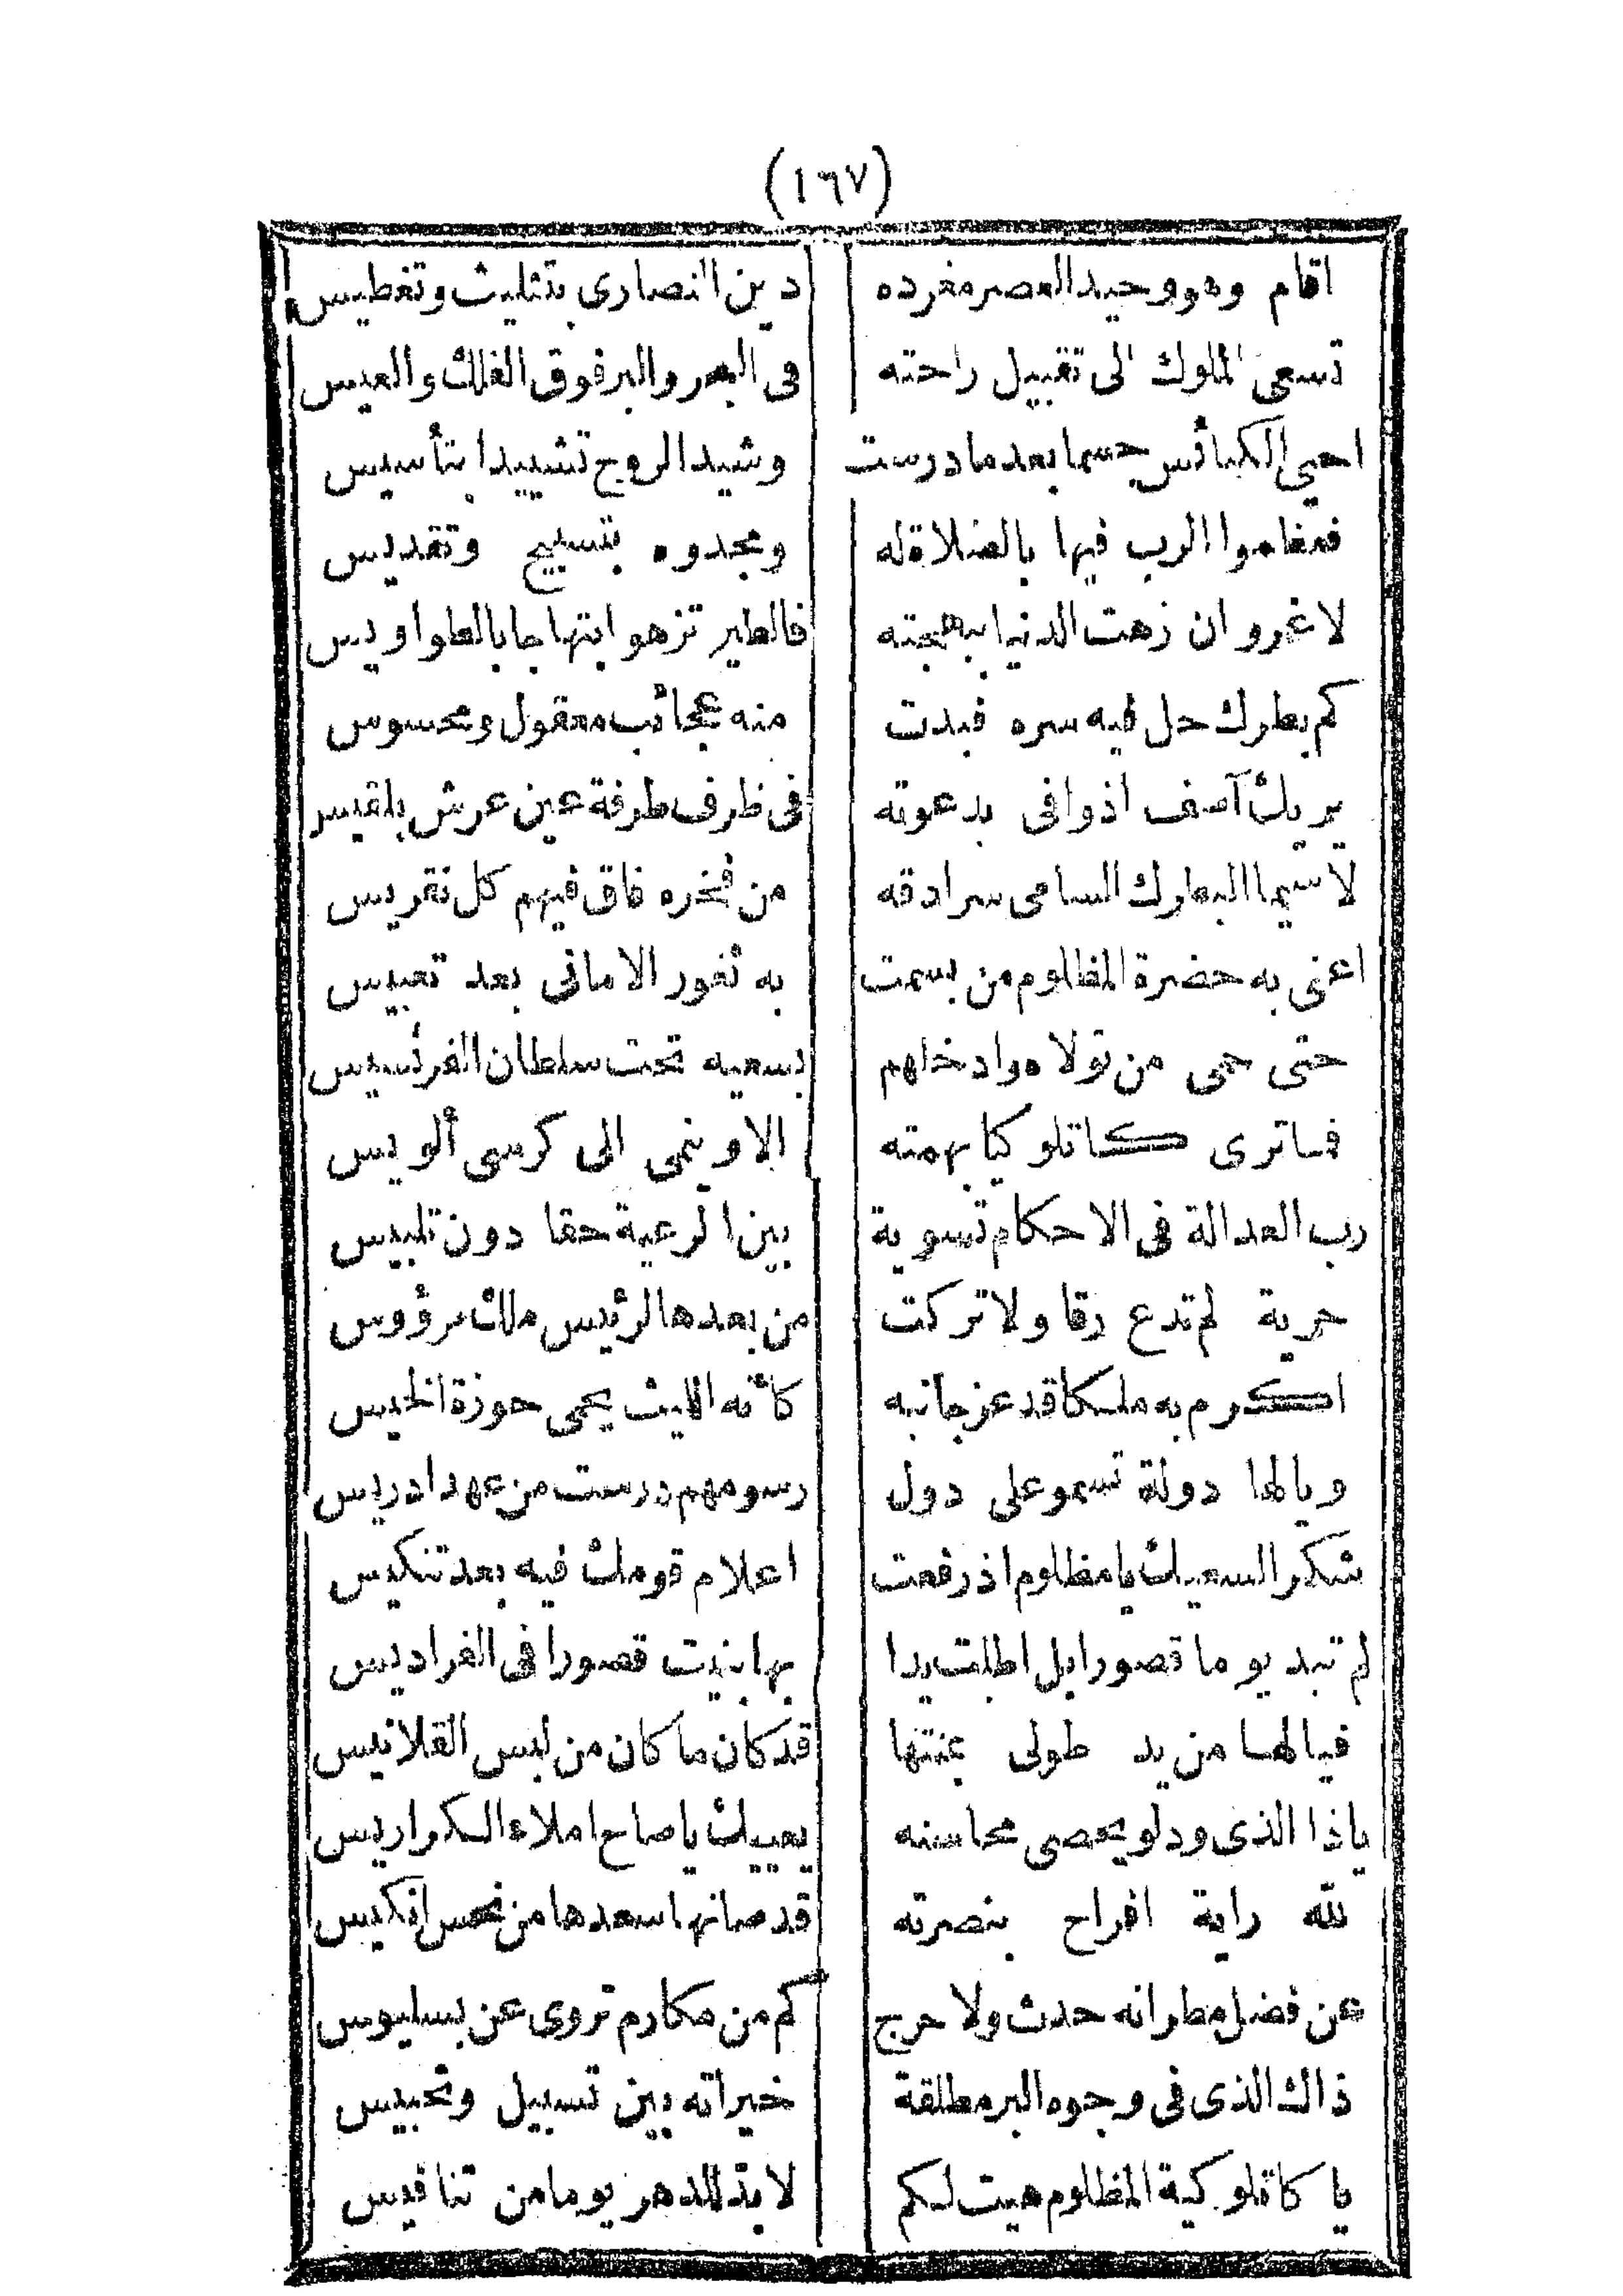 (١٦٧)
اقام وهو وحيد العصر مفرده دين النصارى بتثليث وتغطيس
تسعى الملوك الى تقبيل راحته فى البحر والبر فوق الفلك والعيس
احيى الكنائس جسما بعد ما درست وشيد الروح تشييدا بتأسيس
فعظموا الرب فيها بالصلاة له ومجدوه بتسبيح وتقديس
لا غرو ان زهت الدنيا ببهجته فالطير تزهو ابتهاجا بالطواويس
كم بطرك حل فيه سره فبدت منه عجائب معقول ومحسوس
يريك آصف اذ وافى بدعوته فى ظرف طرفة عين عرش بلقيس
لا سيما البطرك السامى سرادقه من فخره فاق فيهم كل نقريس
اعنى به حضرة المظلوم من بسمت به ثغور الامانى بعد تعبيس
حتى حمى من تولاه وادخلهم بسعيه تحت سلطان الفرنسيس
فما ترى كاتلوكيا بهمته الا وينمى الى كرسى ألويس
رب العدالة فى الاحكام تسوية بين الرعية حقا دون تلبيس
حرية لم تدع رقا ولا تركت من بعدها لرئيس ملك مرؤوس
اكرم به ملكا قد عز جانبه كأنه الليث يحمى حوزة الخيس
ويا لها دولة تسمو على دول رسومهم درست من عهد ادريس
شكرا لسعيك يا مظلوم اذ رفعت اعلام قومك فيه بعد تنكيس
لم تبد يوما قصورا بل اطلت يدا بها بنيت قصورا فى الفراديس
فيا لها من يد طولى بمنتها قد كان ما كان من لبس القلانيس
يا ذا الذى ود لو يحصى محاسنه يعييك يا صاح املاء الكراريس
لله راية افراح بنصرته قد صانها سعدها من نحس انكيس
عن فضل مطرانه حدث ولا حرج كم من مكارم تروى عن بسليوس
ذاك الذى فى وجوه البر مطلقة خيراته بين تسبيل وتحبيس
يا كاتلوكية المظلوم هيت لكم لا بد للدهر يوما من تنافيس